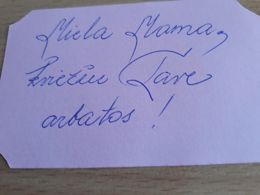 Miela Mama,
kviečiu Tave
arbatos!